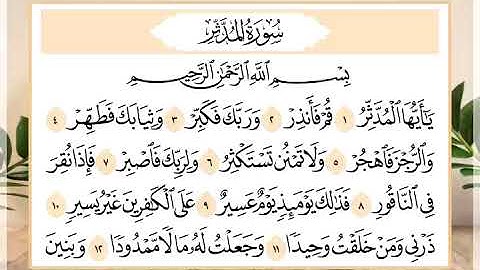 سُورَةُ المُدَّثِّر
بِسْمِ ٱللَّهِ ٱلرَّحْمَٰنِ ٱلرَّحِيمِ
يَٰٓأَيُّهَا ٱلْمُدَّثِّرُ ١ قُمْ فَأَنذِرْ ٢ وَرَبَّكَ فَكَبِّرْ ٣ وَثِيَابَكَ فَطَهِّرْ ٤
وَٱلرُّجْزَ فَٱهْجُرْ ٥ وَلَا تَمْنُن تَسْتَكْثِرُ ٦ وَلِرَبِّكَ فَٱصْبِرْ ٧ فَإِذَا نُقِرَ
فِى ٱلنَّاقُورِ ٨ فَذَٰلِكَ يَوْمَئِذٍ يَوْمٌ عَسِيرٌ ٩ عَلَى ٱلْكَٰفِرِينَ غَيْرُ يَسِيرٍ ١٠
ذَرْنِى وَمَنْ خَلَقْتُ وَحِيدًا ١١ وَجَعَلْتُ لَهُۥ مَالًا مَّمْدُودًا ١٢ وَبَنِينَ